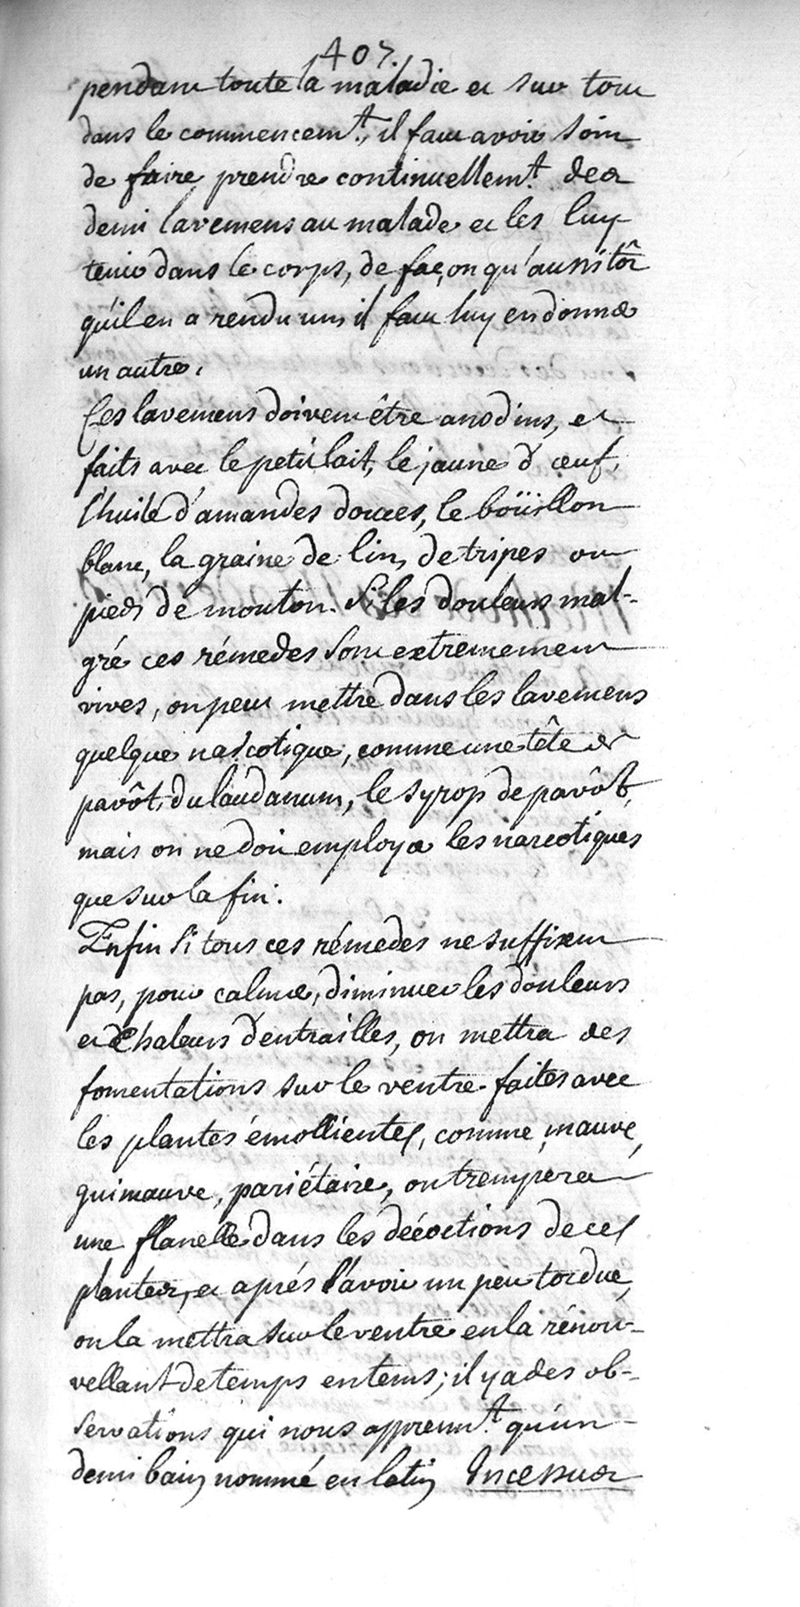 407.
pendant toute la maladie et sur tout
dans le commencem.t, il faut avoir soin
de faire prendre continuellem.t des
demi lavemens au malade et les luy
tenir dans le corps, de façon qu'aussitôt
qu'il en a rendu un, il faut luy en donner
un autre.
Ces lavemens doivent être anodins, et
faits avec le petit lait, le jaune d'œuf,
l'huile d'amandes douces, le boüillon
blanc, la graine de lin, de tripes ou
pieds de mouton. Si les douleurs mal-
gré ces rémedes sont extremement
vives, on peut mettre dans les lavemens
quelque narcotique, comme une tête de
pavôt, du laudanum, le syrop de pavôt,
mais on ne doit employer les narcotiques
que sur la fin.
Enfin si tous ces rémedes ne suffisent
pas, pour calmer, diminuer les douleurs
et chaleurs d'entrailles, on mettra des
fomentations sur le ventre faites avec
les plantes émollientes, comme, mauve,
guimauve, pariétaire, on trempera
une flanelle dans les décoctions de ces
plantes, et aprés l'avoir un peu tordue,
on la mettra sur le ventre en la rénou-
vellant de temps en tems; il y a des ob-
servations qui nous apprenn.t qu'un
demi bain nommé en latin Incessus